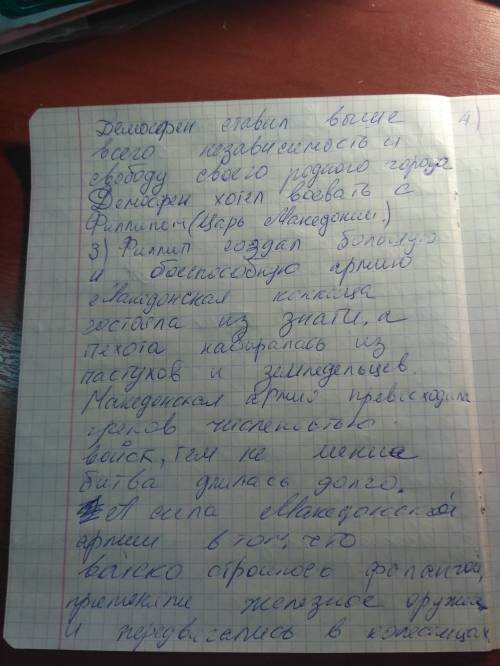 Демосфен ставил выше 4)
всего независимость и
свободу своего родного города
Демосфен хотел воевать с
Филлипом (Царь Македонии.)
3) Филлип создал большую
и боеспособную армию
Македонская конница
состояла из знати, а
пехота набиралась из
пастухов и земледельцев.
Македонская армия превосходила
греков численостью
войск, тем не мение
битва длилась долго.
А сила Македонской
армии в том, что
войско строилось фалангой,
применяли железное оружие
и передвигались в колесницах